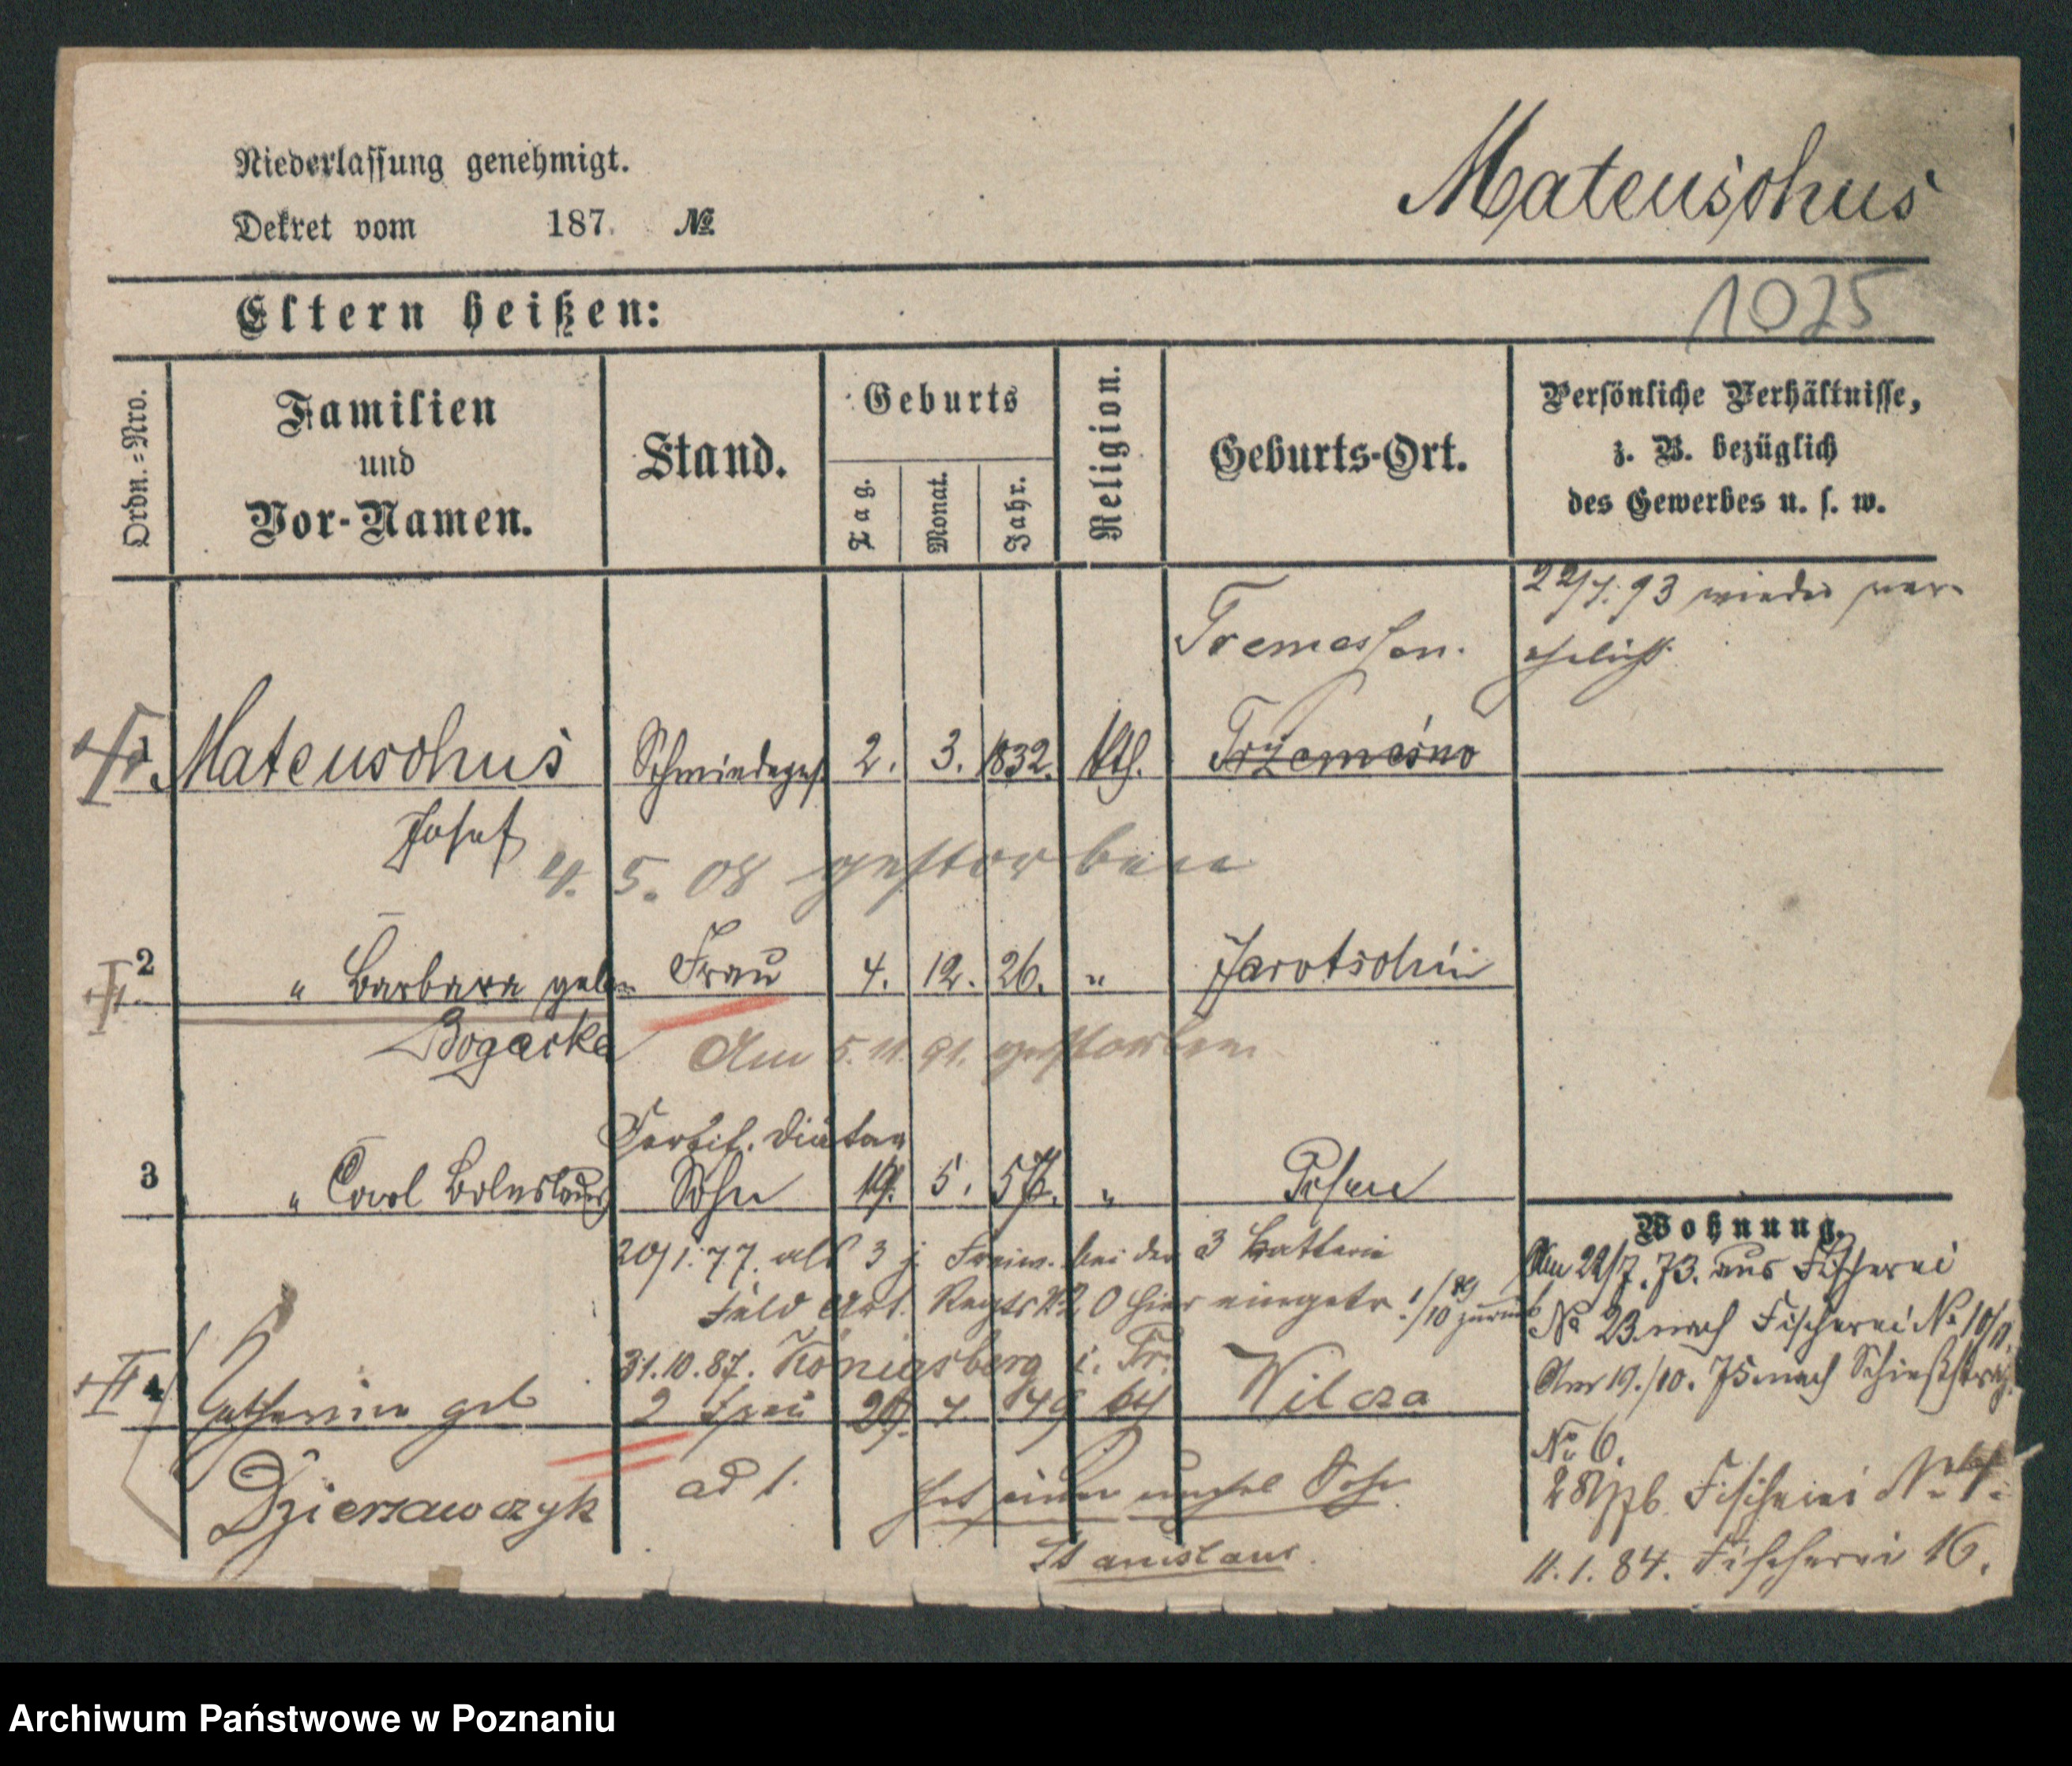 Niederlassung genehmigt.
Mateuschus
Dekret vom 187. №
1025
Eltern heißen:
Ordn.=Nro.
Familien
und
Vor-Namen.
Stand.
Geburts
Tag.
Monat.
Jahr.
Religion.
Geburts-Ort.
Persönliche Verhältnisse,
z. B. bezüglich
des Gewerbes u. s. w.
22/7. 93 wieder ver-
ehelicht.
Tremessen.
1 Mateuschus Schmiedeges 2. 3. 1832. kth. Trzemesno
Josef
4. 5. 08 gestorben
2 " Barbara geb Frau 4. 12. 26. " Jarotschin
Bogacka
Am 5. 11. 91. gestorben
Diätar
3 " Carl Boleslaus Sohn 19. 5. 57. " Posen
20/1. 77. als 3 j. Freiw. bei der 3 Batterie
Feld Art. Regts № 20 hier eingetr. 1/10 zurück
31. 10. 87. Königsberg i. Pr.
4 Catharina geb 2 Frau 7. 49 kth Wilcza
Dzierzawczyk ad 1. hat einen unehel Sohn
Stanislaus.
Wohnung.
Am 22/7. 73. aus Fischerei
№ 23 nach Fischerei № 10/11.
Am 19./10. 75 nach Schießstraße
№ 6.
Fischerei
11. 1. 84. Fischerei 16.
Archiwum Państwowe w Poznaniu